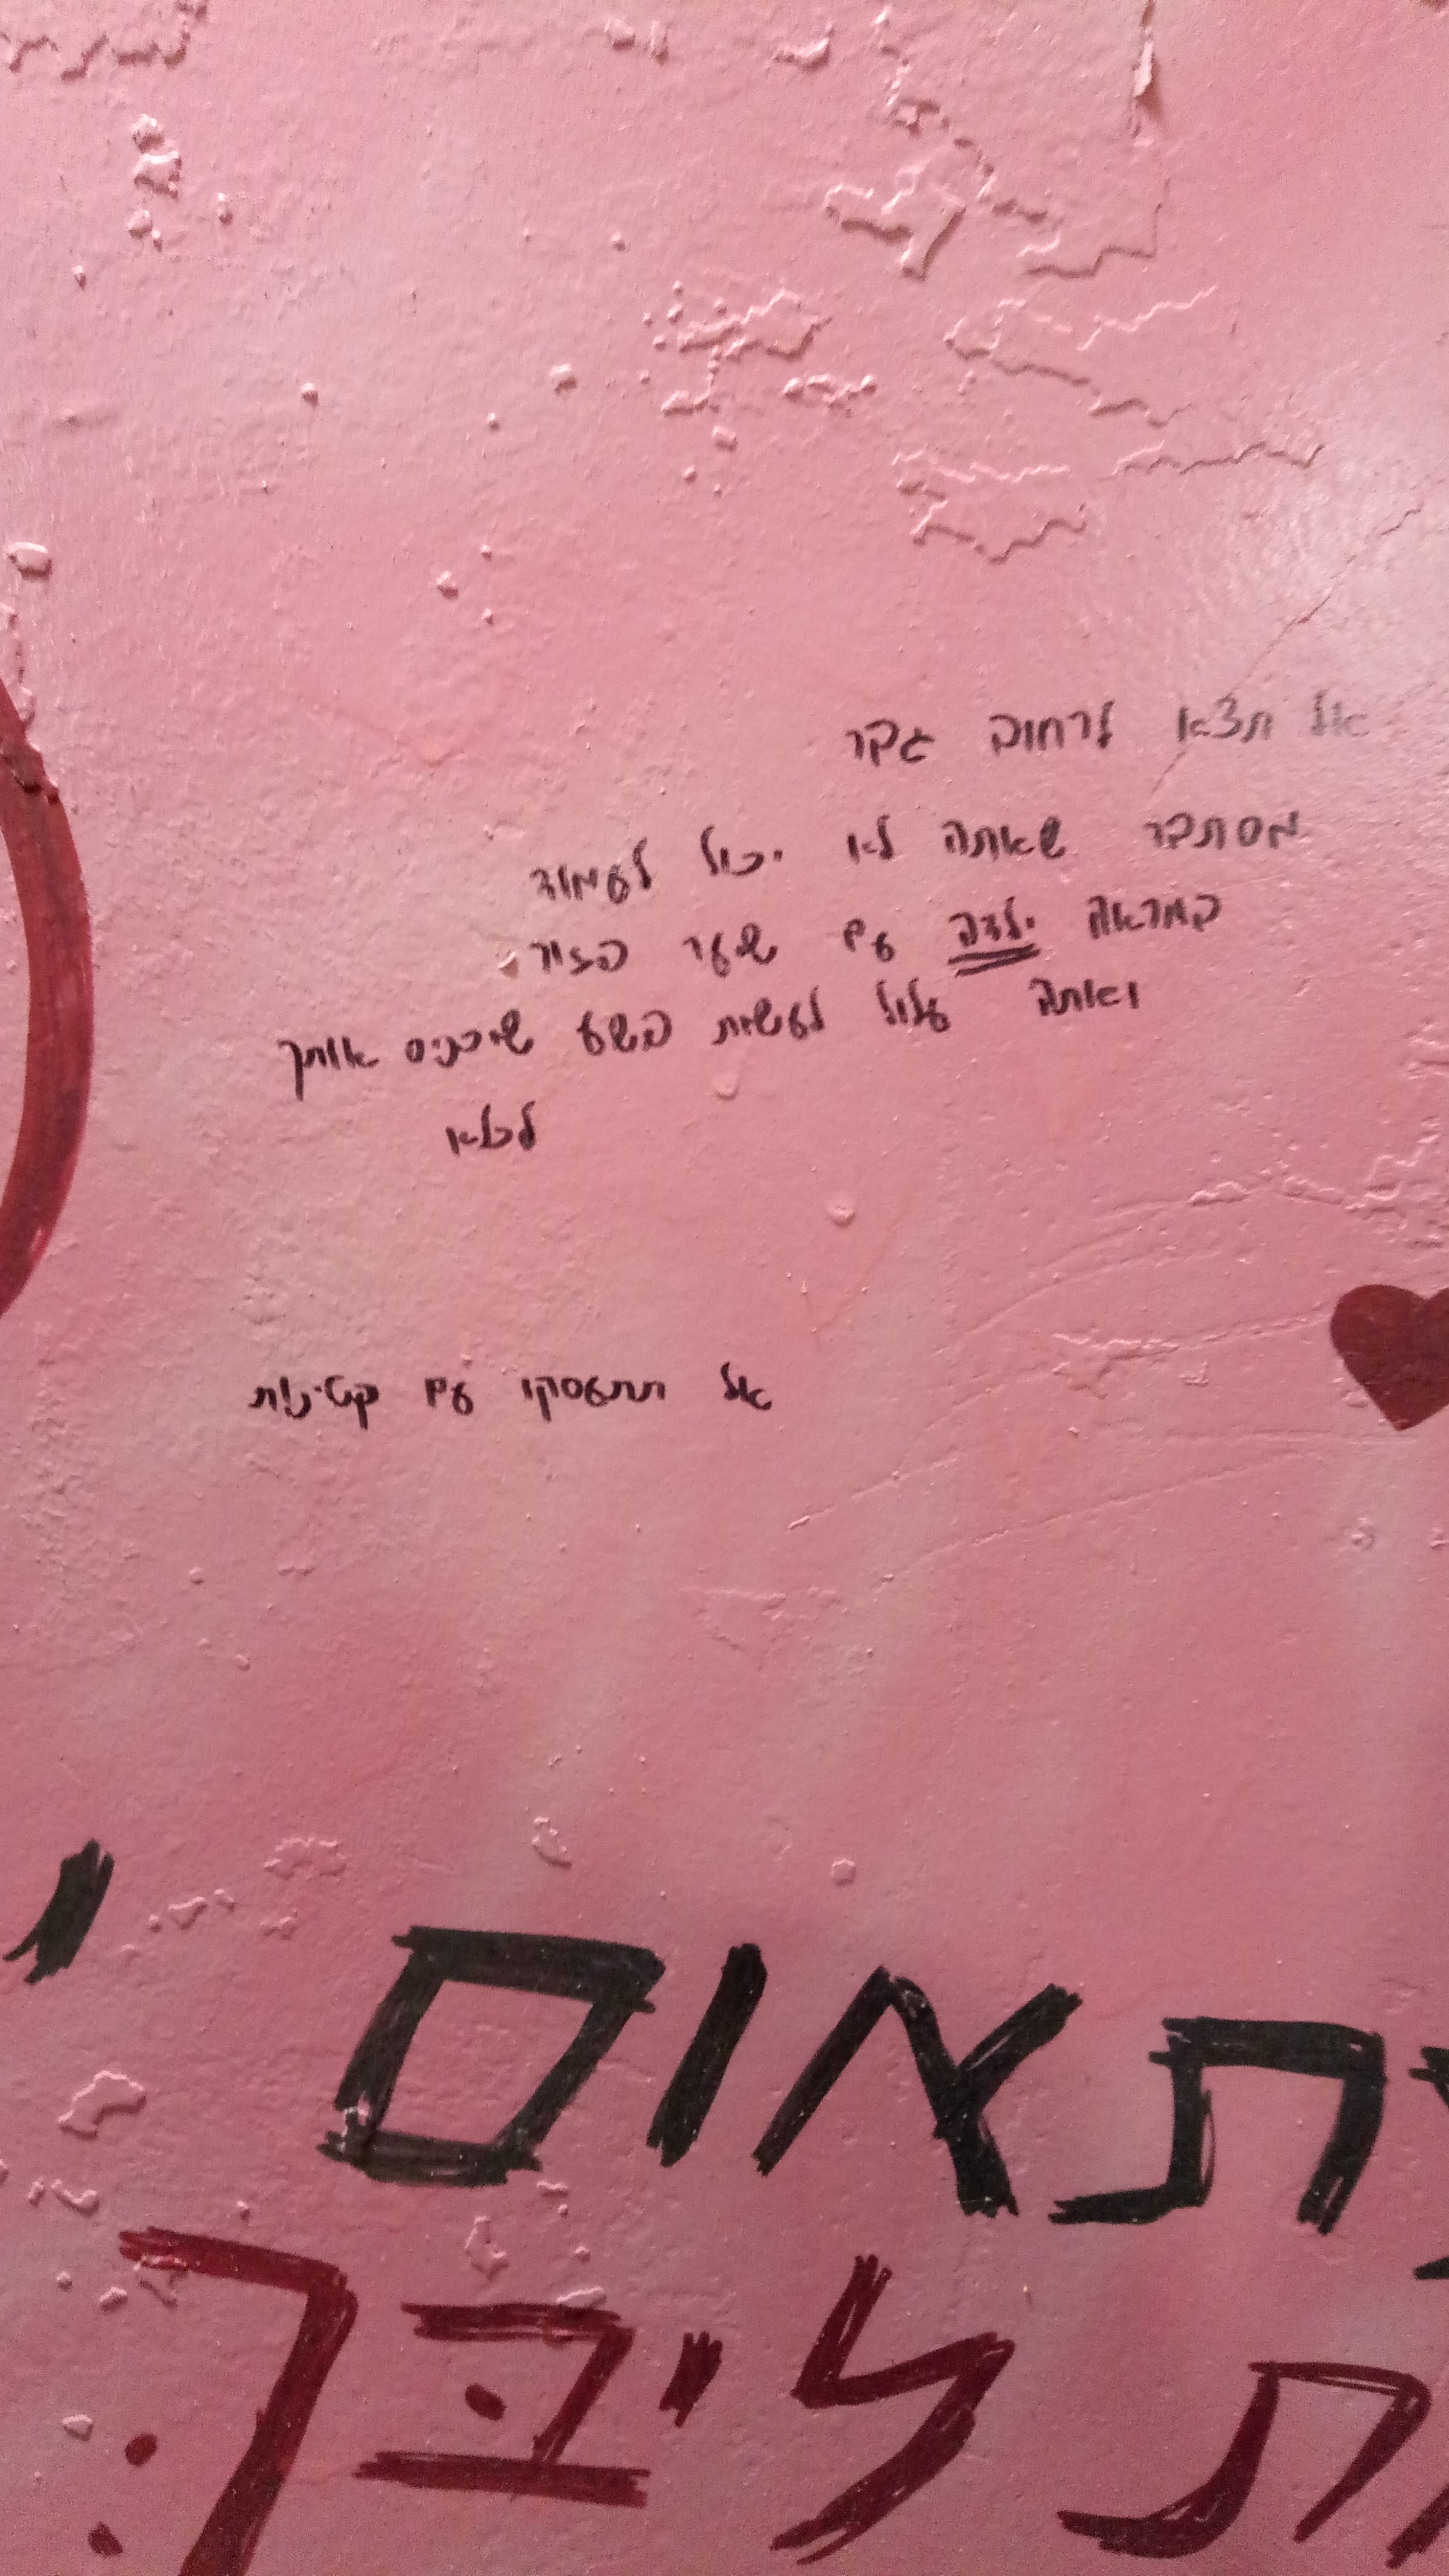 אל תצא לרחוב גבר
מסתבר שאתה לא יכול לעמוד
במראה ילדה עם שער בציר
ואתה עלול לעשות פשע שיכניס אותך
לכלא
אל תתעסקו עם קטינות
תאום
ת ליבך